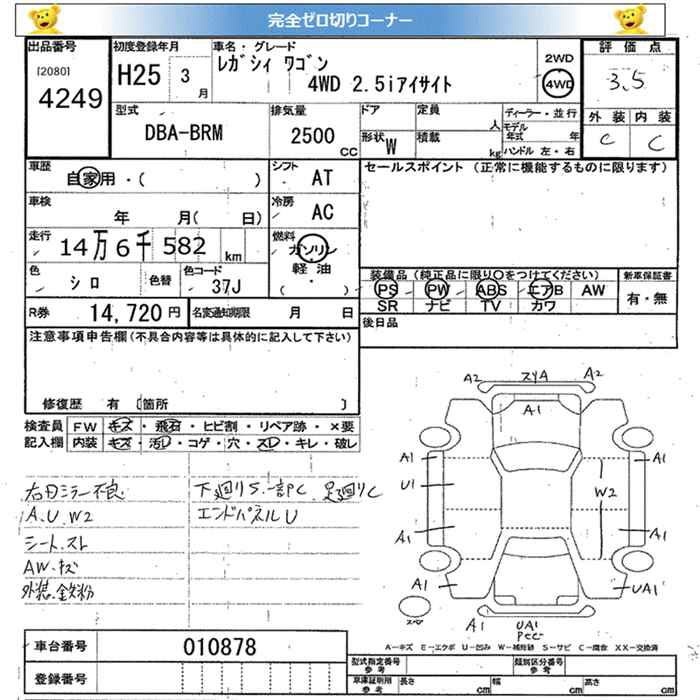 完全ゼロ切りコーナー
出品番号 初度登録年月 車名・グレード 2WD 評価点
[2080] 4249 H25 3月 レガシィ ワゴン 4WD 3.5
4WD 2.5iアイサイト
型式 排気量 ドア 定員 人 ディーラー・並行 外装 内装
DBA-BRM 2500CC 形状 W 積載 kg モデル年式 年 C C
ハンドル 左・右
車歴 自家用・( ) シフト AT セールスポイント (正常に機能するものに限ります)
車検 年 月( 日) 冷房 AC
走行 14万6千582km 燃料 ガソリン
軽油
・( )
色 シロ 色替 色コード 37J 装備品(純正品に限り○をつけてください) 新車保証書
PS PW ABS エアB AW 有・無
R券 14,720円 名変通知期限 月 日 SR ナビ TV カワ
注意事項申告欄(不具合内容等は具体的に記入して下さい) 後日品
修復歴 有 〔箇所 〕
検査員 FW キズ・飛石・ヒビ割・リペア跡・×要
記入欄 内装 キズ・汚レ・コゲ・穴・スレ・キレ・破レ
右日ミラー不良 下廻りS.一部PC 足廻りC
A.U.W2 エンドパネルU
シート.スト
AW.キズ
外装.鉄粉
A2 スリA A2
A1
A1 A1
U1 W2
A1 A1
A1 UA1
A1 UA1
PCC
スペア
A-キズ E-エクボ U-凹み W-補修跡 S-サビ C-腐食 XX-交換済
車台番号 010878
登録番号
型式指定番号 参考 類別区分番号 参考
車庫証明用 参考 長さ cm 幅 cm 高さ cm